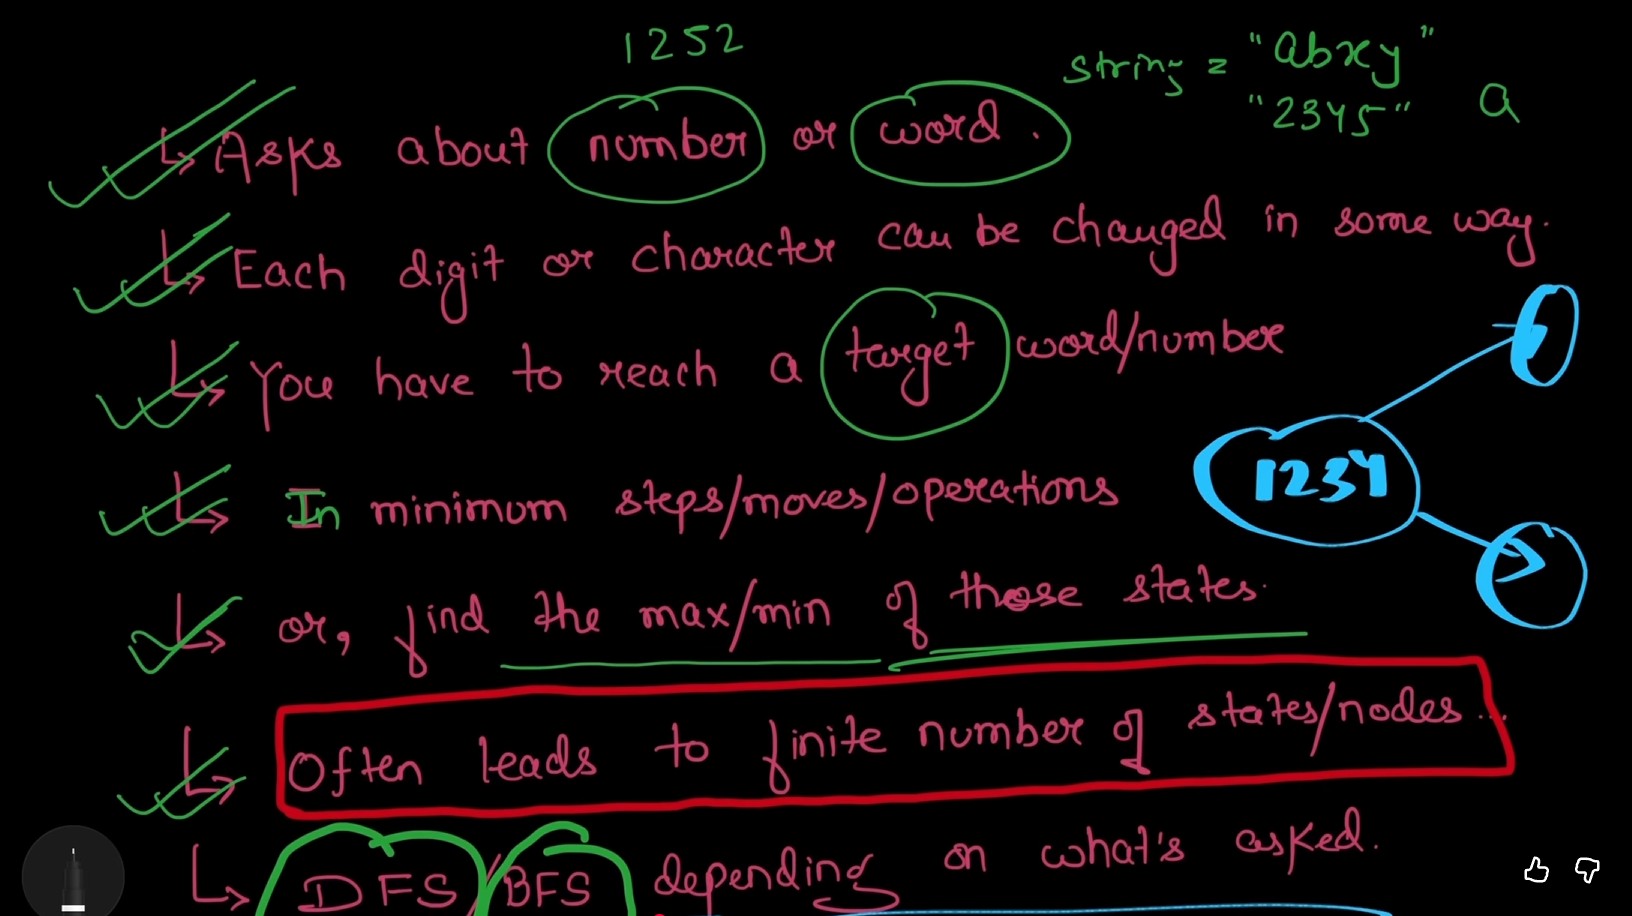 1252
string = "abxy"
"2345" a
↳ Asks about number or word.
↳ Each digit or character can be changed in some way.
↳ You have to reach a target word/number
↳ In minimum steps/moves/operations
1234
↳ or, find the max/min of those states.
↳ Often leads to finite number of states/nodes...
↳ DFS/BFS depending on what's asked.